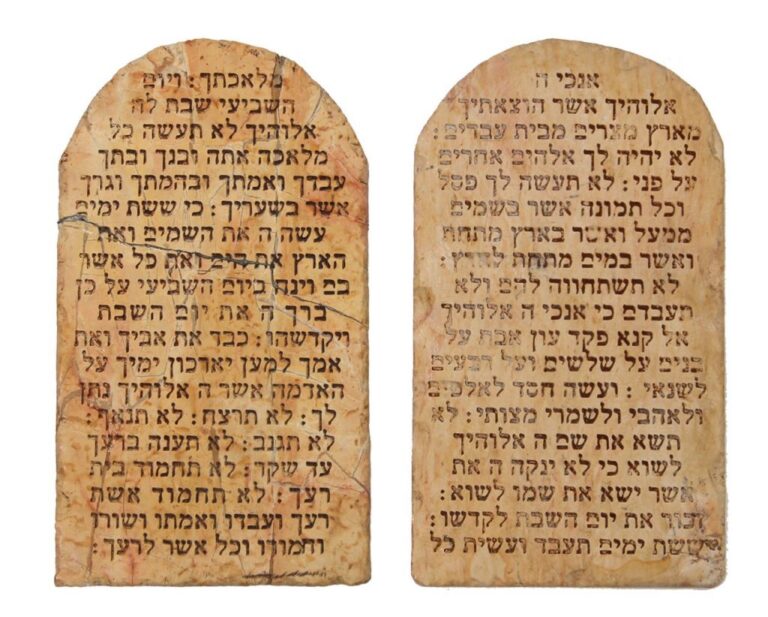 אנכי ה
אלוהיך אשר הוצאתיך
מארץ מצרים מבית עבדים :
לא יהיה לך אלהים אחרים
על פני : לא תעשה לך פסל
וכל תמונה אשר בשמים
ממעל ואשר בארץ מתחת
ואשר במים מתחת לארץ :
לא תשתחווה להם ולא
תעבדם כי אנכי ה אלוהיך
אל קנא פקד עון אבת על
בנים על שלשים ועל רבעים
לשנאי : ועשה חסד לאלפים
ולאהבי ולשמרי מצותי : לא
תשא את שם ה אלוהיך
לשוא כי לא ינקה ה את
אשר ישא את שמו לשוא :
זכור את יום השבת לקדשו :
ששת ימים תעבד ועשית כל
מלאכתך : ויום
השביעי שבת לה
אלוהיך לא תעשה כל
מלאכה אתה ובנך ובתך
עבדך ואמתך ובהמתך וגרך
אשר בשעריך : כי ששת ימים
עשה ה את השמים ואת
הארץ את הים ואת כל אשר
בם וינח ביום השביעי על כן
ברך ה את יום השבת
ויקדשהו : כבד את אביך ואת
אמך למען יארכון ימיך על
האדמה אשר ה אלוהיך נתן
לך : לא תרצח : לא תנאף :
לא תגנב : לא תענה ברעך
עד שקר : לא תחמוד בית
רעך : לא תחמוד אשת
רעך ועבדו ואמתו ושורו
וחמורו וכל אשר לרעך :